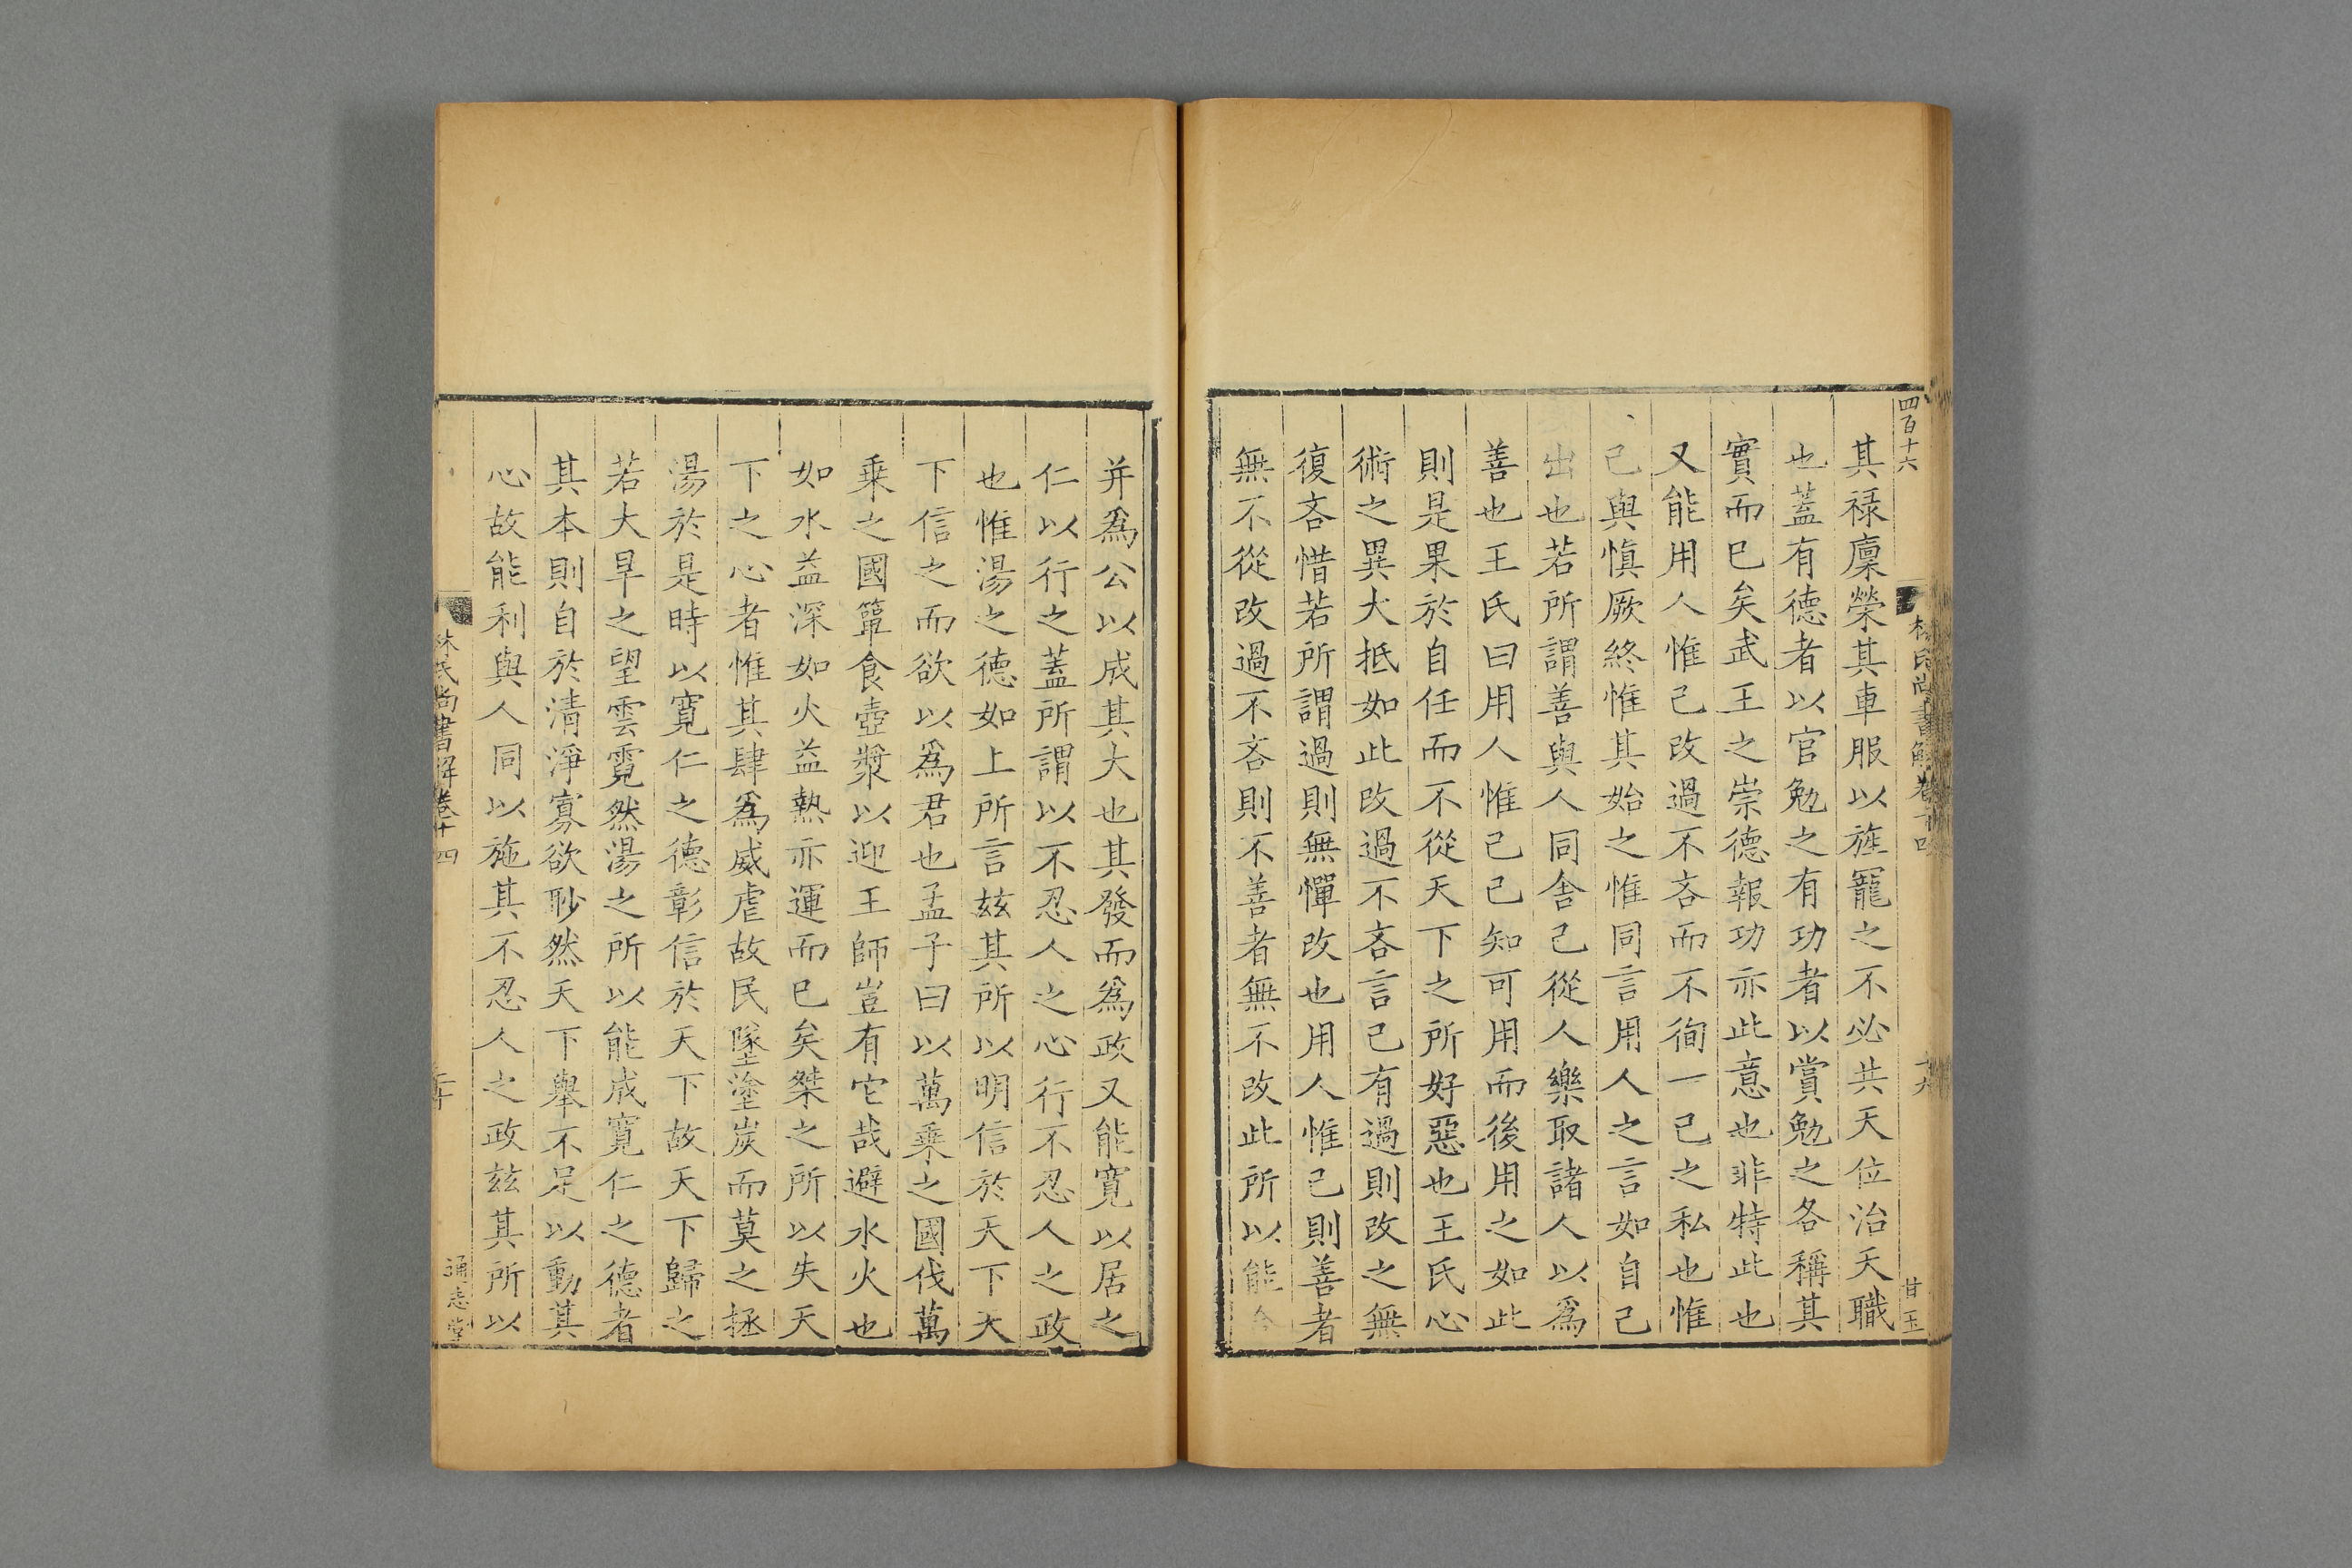 四百十六
林氏尚書解卷十四
十九
甘玉
其祿廩榮其車服以旌寵之不必共天位治天職
也蓋有德者以官勉之有功者以賞勉之各稱其
實而已矣武王之崇德報功亦此意也非特此也
又能用人惟己改過不吝而不徇一己之私也惟
己與慎厥終惟其始之惟同言用人之言如自己
出也若所謂善與人同舍己從人樂取諸人以為
善也王氏曰用人惟己己知可用而後用之如此
則是果於自任而不從天下之所好惡也王氏心
術之異大抵如此改過不吝言己有過則改之無
復吝惜若所謂過則無憚改也用人惟己則善者
無不從改過不吝則不善者無不改此所以能合
并爲公以成其大也其發而爲政又能寛以居之
仁以行之蓋所謂以不忍人之心行不忍人之政
也惟湯之德如上所言兹其所以明信於天下天
下信之而欲以爲君也孟子曰以萬乗之國伐萬
乗之國簞食壺漿以迎王師豈有它哉避水火也
如水益深如火益熱亦運而已矣桀之所以失天
下之心者惟其肆爲威虐故民墜塗炭而莫之拯
湯於是時以寛仁之德彰信於天下故天下歸之
若大旱之望雲霓然湯之所以能成寛仁之德者
其本則自於清淨寡欲眇然天下舉不足以動其
心故能利與人同以施其不忍人之政兹其所以
林氏尚書解卷十四
二十
通志堂